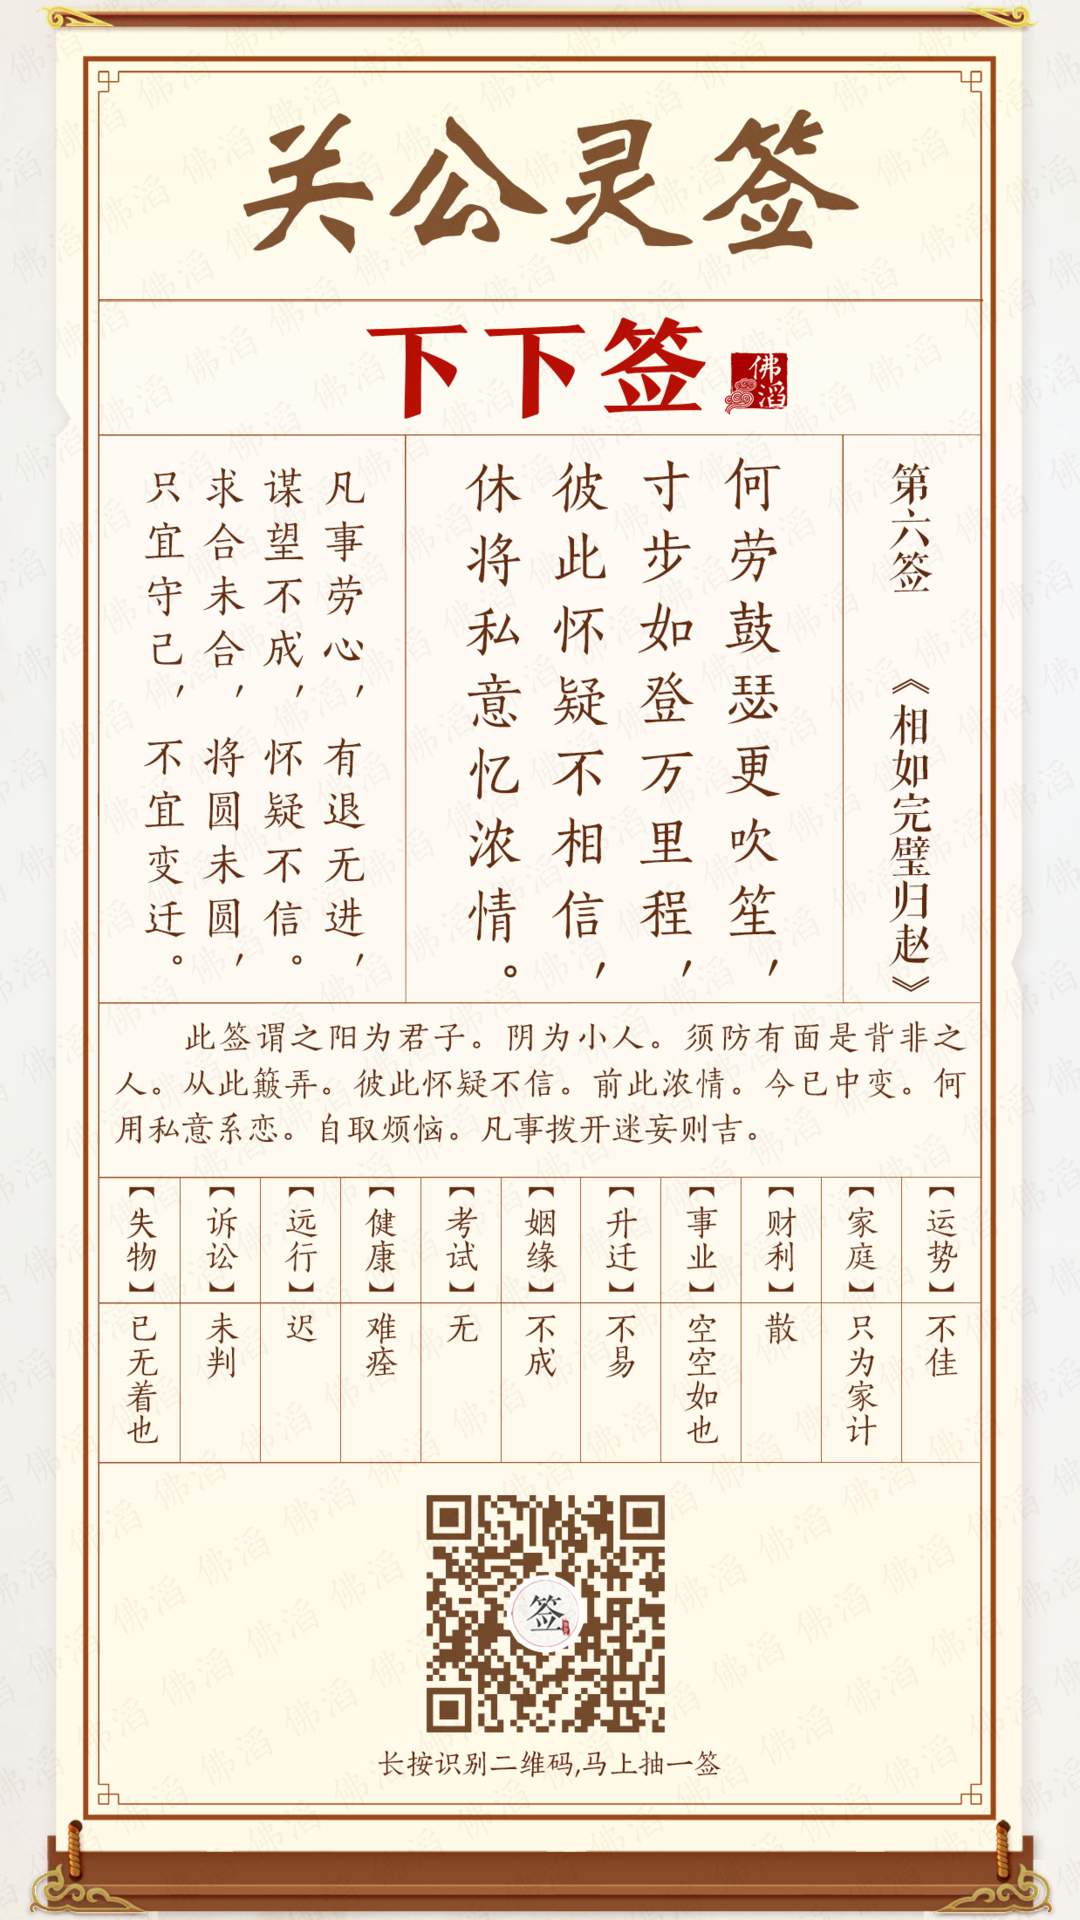 关公灵签
下下签
佛滔
第六签 《相如完璧归赵》
何劳鼓瑟更吹笙，
寸步如登万里程，
彼此怀疑不相信，
休将私意忆浓情。
凡事劳心，有退无进，
谋望不成，怀疑不信。
求合未合，将圆未圆，
只宜守己，不宜变迁。
此签谓之阳为君子。阴为小人。须防有面是背非之
人。从此簸弄。彼此怀疑不信。前此浓情。今已中变。何
用私意系恋。自取烦恼。凡事拨开迷妄则吉。
【运势】不佳
【家庭】只为家计
【财利】散
【事业】空空如也
【升迁】不易
【姻缘】不成
【考试】无
【健康】难痊
【远行】迟
【诉讼】未判
【失物】已无着也
签
长按识别二维码,马上抽一签